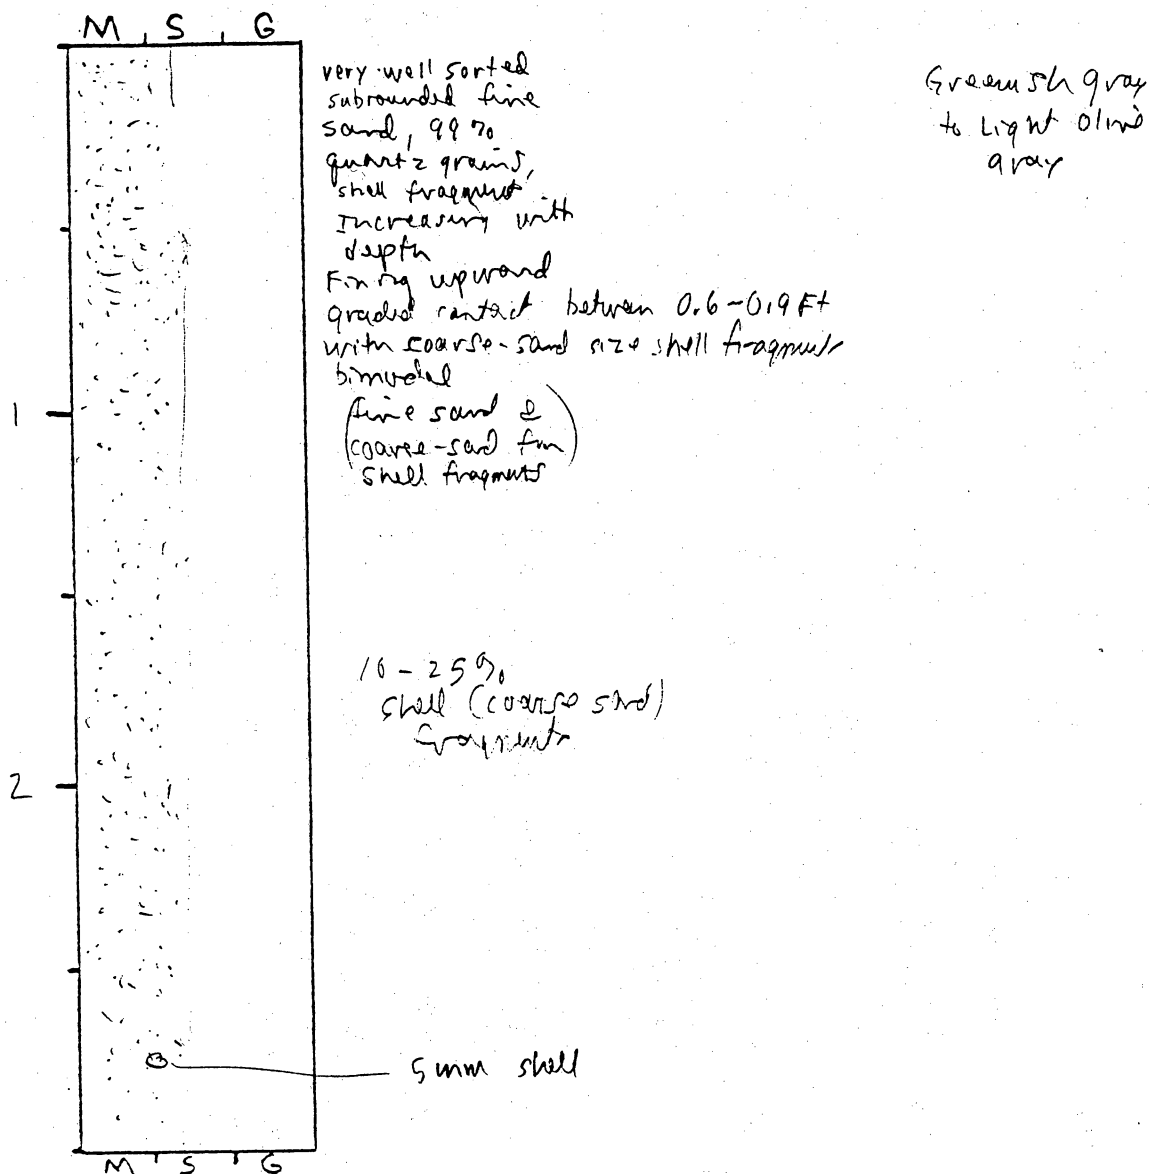 M S G
very well sorted
subrounded fine
sand, 99%
quartz grains,
shell fragment
Increasing with
depth
Fining upward
graded contact between 0.6-0.9 Ft
with coarse-sand size shell fragments
bimodal
(fine sand &
coarse-sand from
shell fragments)
Greenish gray
to Light olive
gray
1
10-25%
shell (coarse sand)
fragments
2
5 mm shell
M S G